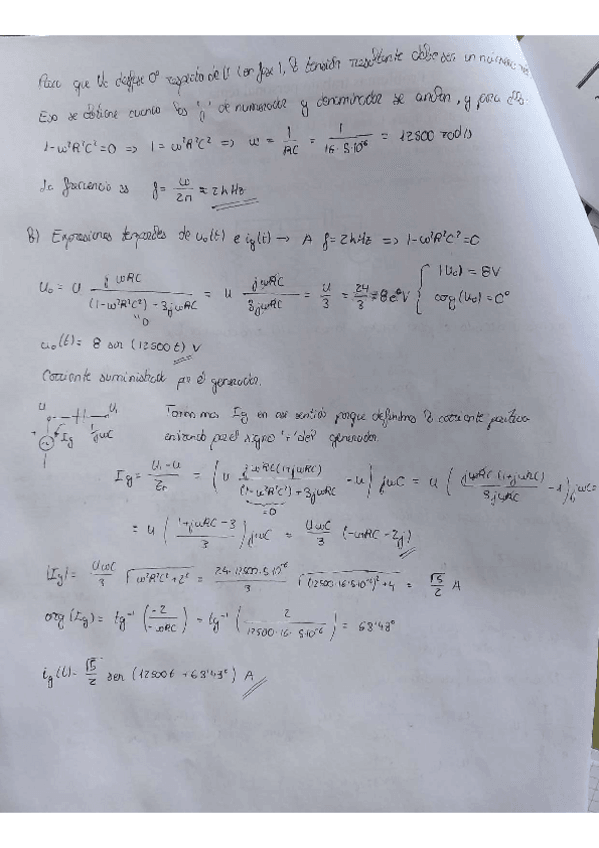 Para que U₀ desfase 0° respecto de U con fase 1, la tensión resultante debe ser un número
Eso se obtiene cuando las 'j' de numerador y denominador se anulan, y para ello:
1-ω²R²C²=0 => 1 = ω²R²C² => ω = 1/RC = 1/(16·5·10⁻⁶) = 12500 rad/s
La frecuencia es f = ω/2π ≈ 2kHz
B) Expresiones temporales de u₀(t) e ig(t) → A f=2kHz => 1-ω²R²C²=0
U₀ = U jωRC/((1-ω²R²C²)-3jωRC) = U jωRC/3jωRC = U/3 = 24/3 = 8e⁰ V { |U₀| = 8V
"0
arg(U₀) = 0°
u₀(t) = 8 sen (12500t) V
Corriente suministrada por el generador.
U U₁
+ Ig 1/jωC
Tomamos Ig en ese sentido porque definimos la corriente positiva
entrando por el signo '+' del generador.
Ig = (U₁-U)/Zc = (U jωRC(1+jωRC)/((1-ω²R²C²)+3jωRC) - U) jωC = U (jωRC(1+jωRC)/3jωRC - 1) jωC =
=0
= U ((1+jωRC-3)/3) jωC = UωC/3 (-ωRC-2j)
|Ig| = UωC/3 √(ω²R²C²+2²) = 24·12500·5·10⁻⁶/3 √((12500·16·5·10⁻⁶)²+4) = √5/2 A
arg(Ig) = tg⁻¹(-2/-ωRC) = tg⁻¹(2/(12500·16·5·10⁻⁶)) = 63'43°
ig(t) = √5/2 sen (12500t + 63'43°) A